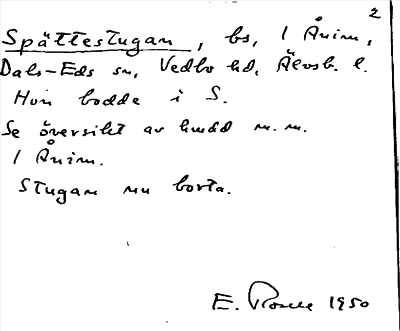 2
Spättestugan, bs, 1 Ånim,
Dals-Eds sn, Vedbo hd, Älvsb. l.
Hon bodde i S.
Se översikt av hmdd m.m.
1 Ånim.
Stugan nu borta.
E. 1950